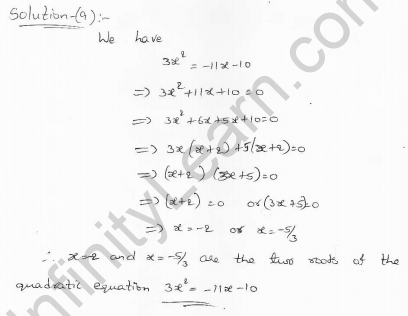 Solution-(9):-
We have
3x² = -11x-10
=> 3x²+11x+10=0
=> 3x²+6x+5x+10=0
=> 3x(x+2)+5(x+2)=0
=> (x+2) (3x+5)=0
=> (x+2) =0 or (3x+5)=0
=> x=-2 or x=-5/3
∴ x=-2 and x=-5/3 are the two roots of the
quadratic equation 3x²=-11x-10
infinityLearn.com